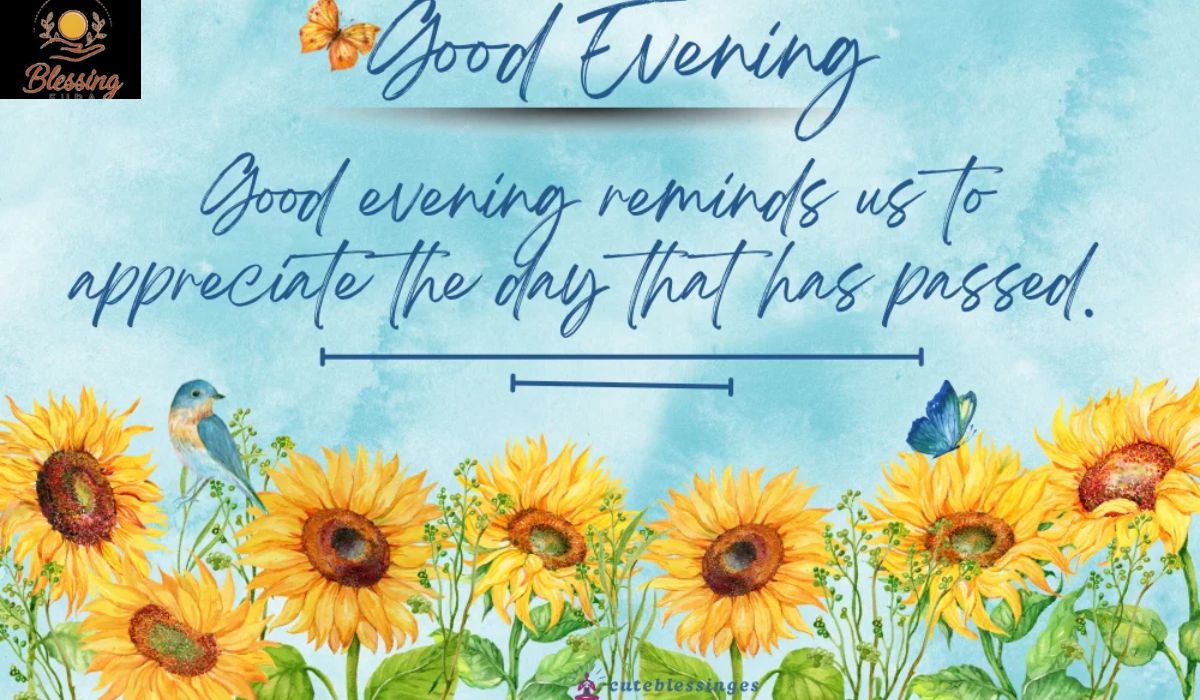 Blessing
Good Evening
Good evening reminds us to
appreciate the day that has passed.
cuteblessinges